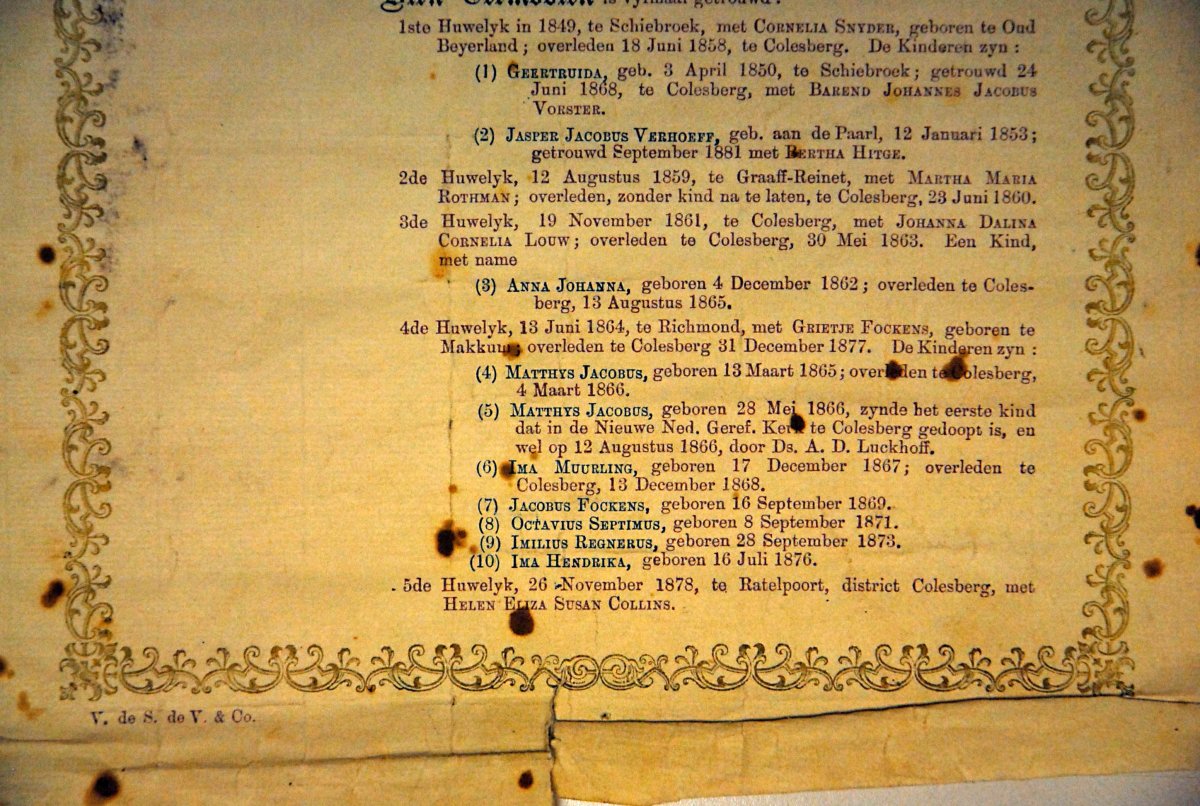 is vyfmaal getrouwd:
1ste Huwelyk in 1849, te Schiebroek, met CORNELIA SNYDER, geboren te Oud
Beyerland; overleden 18 Juni 1858, te Colesberg. De Kinderen zyn:
(1) GEERTRUIDA, geb. 3 April 1850, te Schiebroek; getrouwd 24
Juni 1868, te Colesberg, met BAREND JOHANNES JACOBUS
VORSTER.
(2) JASPER JACOBUS VERHOEFF, geb. aan de Paarl, 12 Januari 1853;
getrouwd September 1881 met BERTHA HITGE.
2de Huwelyk, 12 Augustus 1859, te Graaff-Reinet, met MARTHA MARIA
ROTHMAN; overleden, zonder kind na te laten, te Colesberg, 23 Juni 1860.
3de Huwelyk, 19 November 1861, te Colesberg, met JOHANNA DALINA
CORNELIA LOUW; overleden te Colesberg, 30 Mei 1863. Een Kind,
met name
(3) ANNA JOHANNA, geboren 4 December 1862; overleden te Coles-
berg, 13 Augustus 1865.
4de Huwelyk, 13 Juni 1864, te Richmond, met GRIETJE FOCKENS, geboren te
Makkum; overleden te Colesberg 31 December 1877. De Kinderen zyn:
(4) MATTHYS JACOBUS, geboren 13 Maart 1865; overleden te Colesberg,
4 Maart 1866.
(5) MATTHYS JACOBUS, geboren 28 Mei 1866, zynde het eerste kind
dat in de Nieuwe Ned. Geref. Kerk te Colesberg gedoopt is, en
wel op 12 Augustus 1866, door Ds. A. D. Luckhoff.
(6) IMA MUURLING, geboren 17 December 1867; overleden te
Colesberg, 13 December 1868.
(7) JACOBUS FOCKENS, geboren 16 September 1869.
(8) OCTAVIUS SEPTIMUS, geboren 8 September 1871.
(9) IMILIUS REGNERUS, geboren 28 September 1873.
(10) IMA HENDRIKA, geboren 16 Juli 1876.
5de Huwelyk, 26 November 1878, te Ratelpoort, district Colesberg, met
HELEN ELIZA SUSAN COLLINS.
V. de S. de V. & Co.